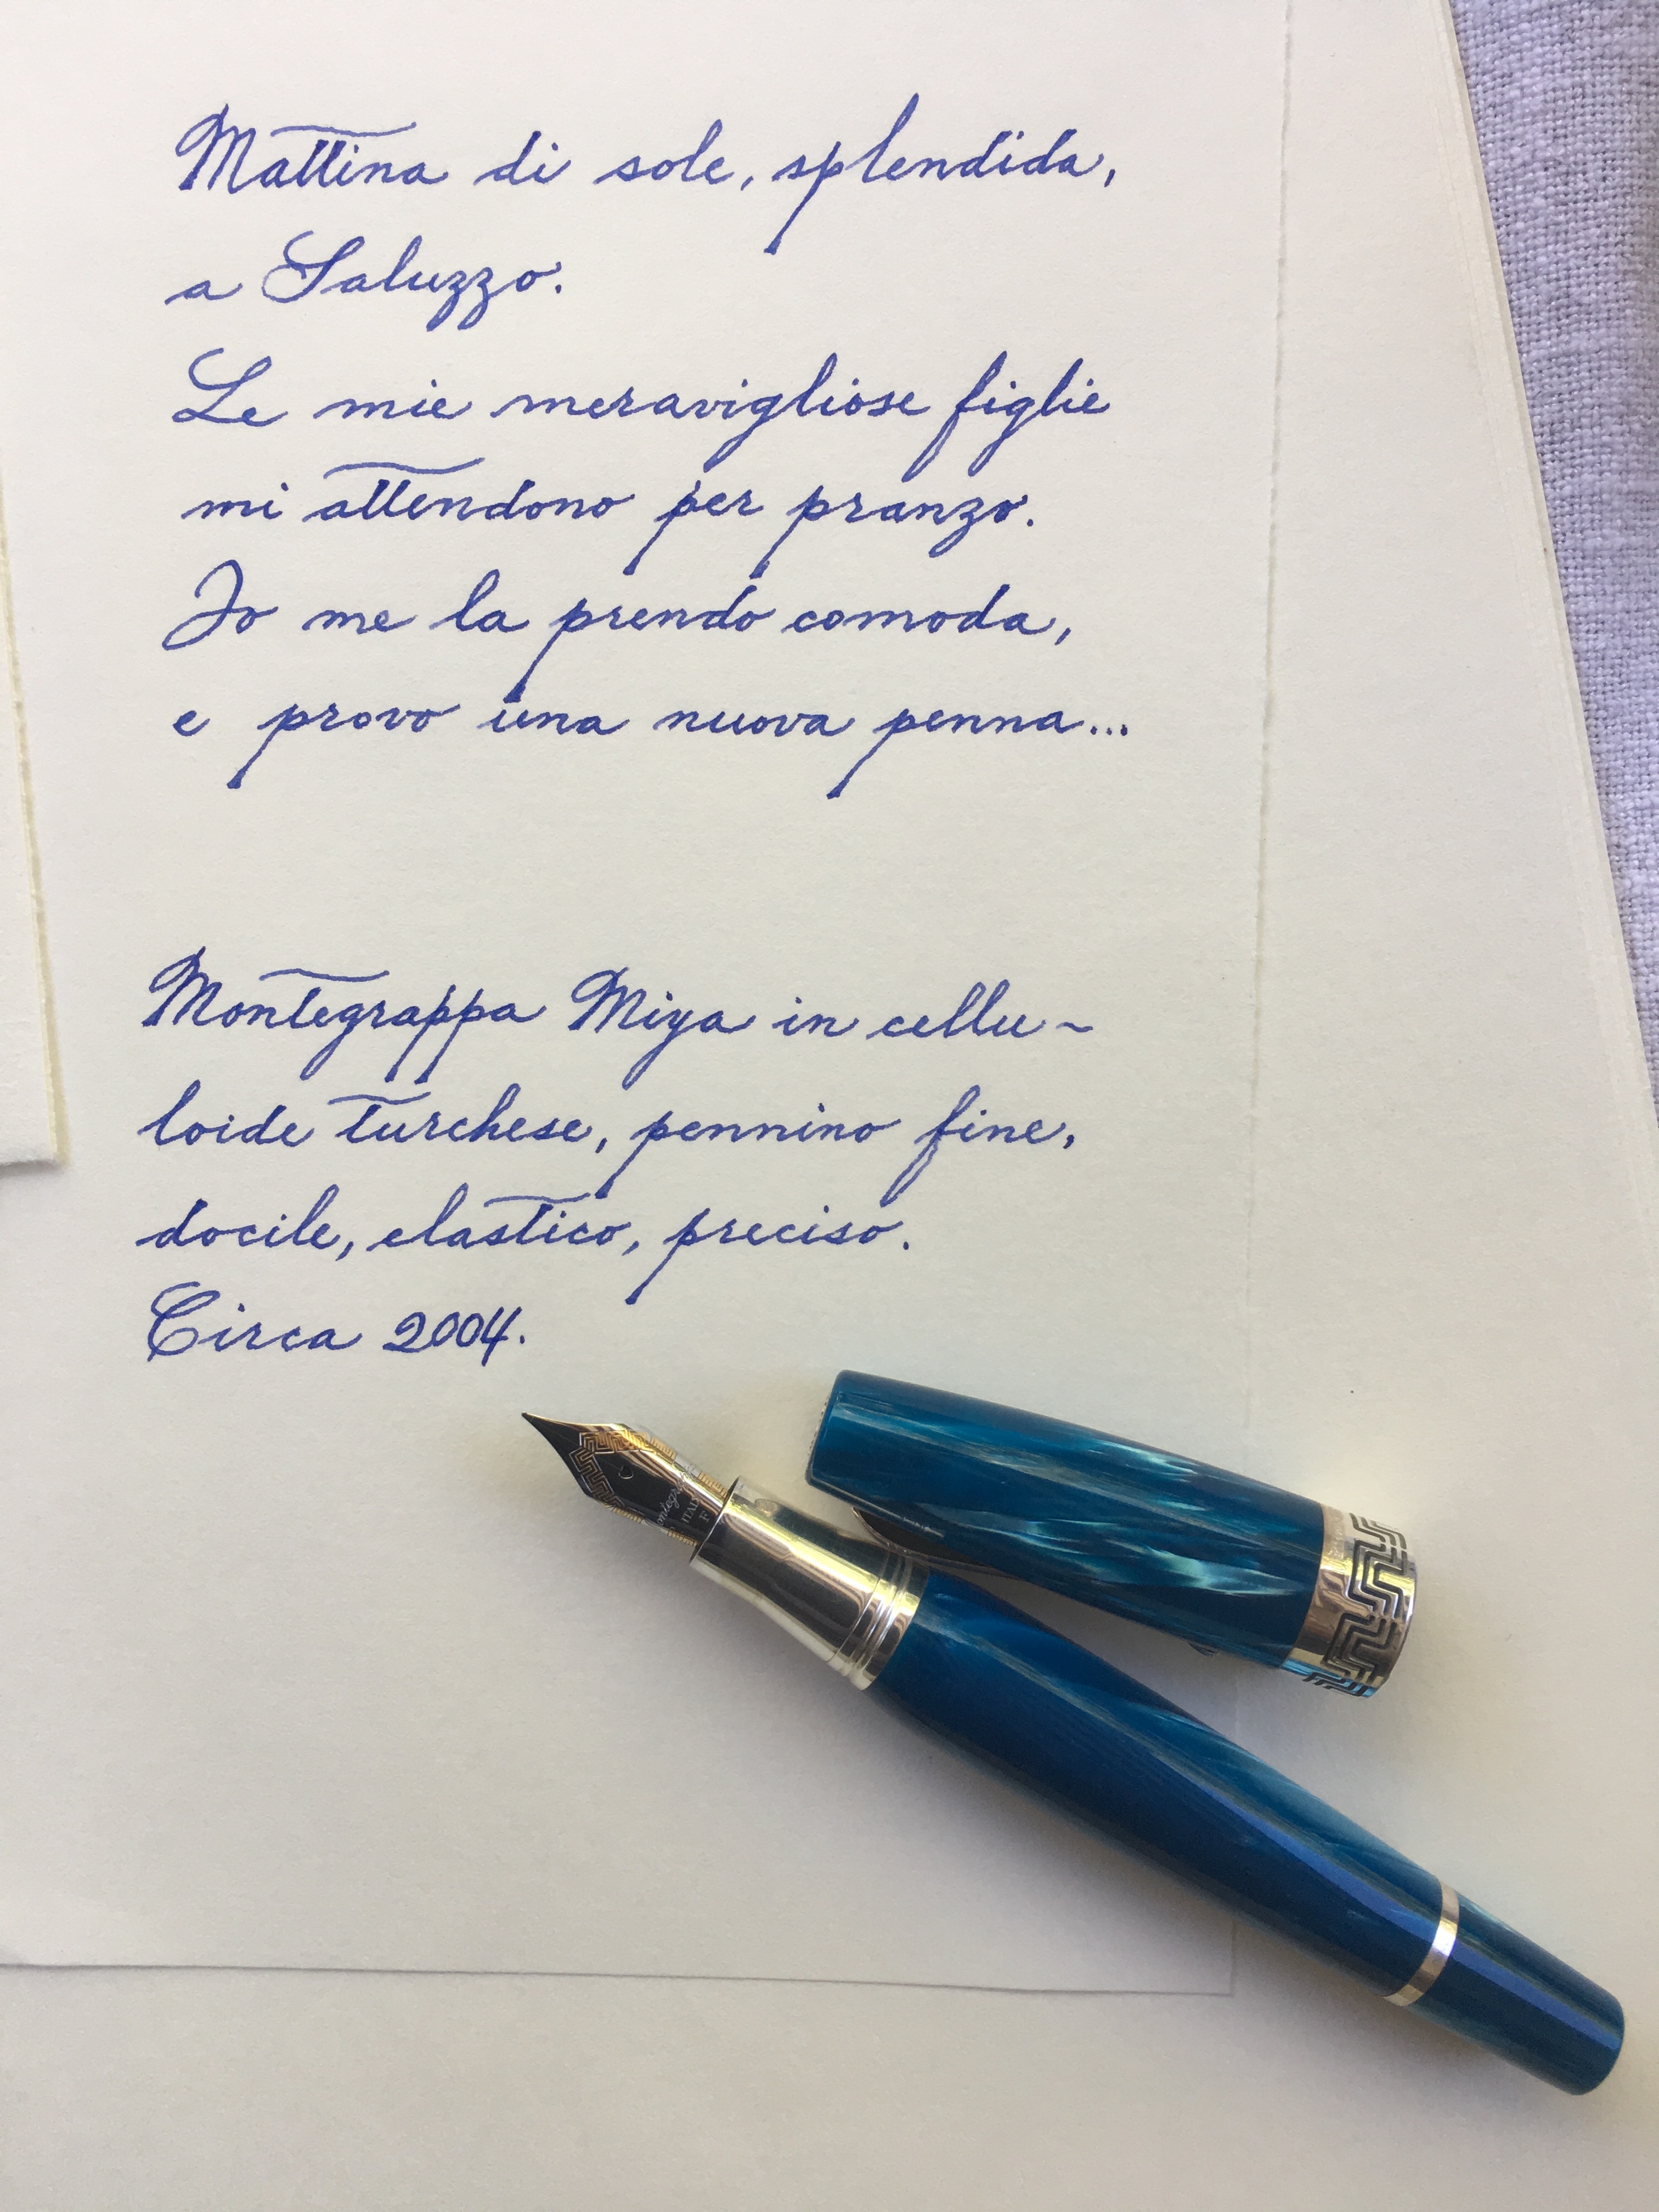 Mattina di sole, splendida,
a Saluzzo.
Le mie meravigliose figlie
mi attendono per pranzo.
Io me la prendo comoda,
e provo una nuova penna...
Montegrappa Miya in cellu~
loide turchese, pennino fine,
docile, elastico, preciso.
Circa 2004.
ITALY
F